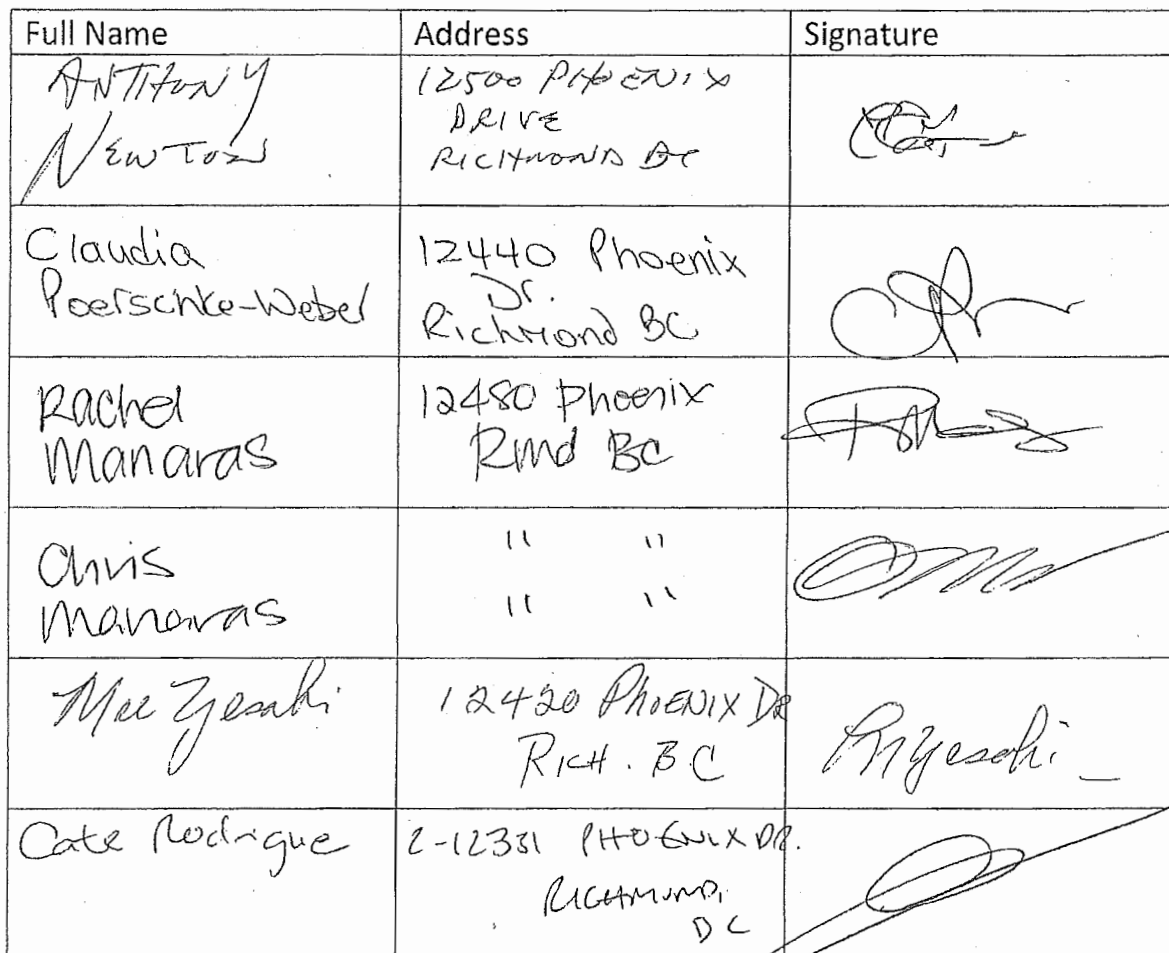 Full Name Address Signature
ANTHONY
NEWTON
12500 PHOENIX
DRIVE
RICHMOND BC
Claudia
Poerschke-Weber
12440 Phoenix
Dr.
Richmond BC
Rachel
Manaras
12480 Phoenix
Rmd BC
Chris
Manaras
" "
" "
12420 PHOENIX DR
RICH. BC
Yesaki
Cate Rodrigue
2-12331 PHOENIX DR.
RICHMOND,
BC